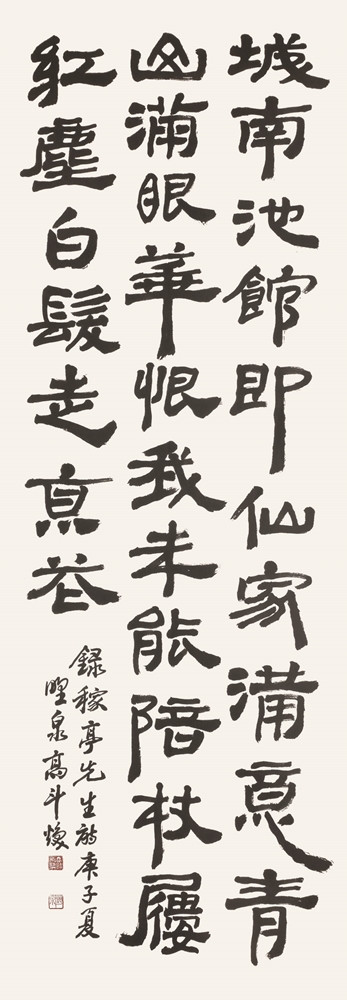 城南池館即仙家滿意青
山滿眼華恨我未能陪杖屨
紅塵白髮走京
錄稼亭先生詩庚子夏
野泉高斗煥